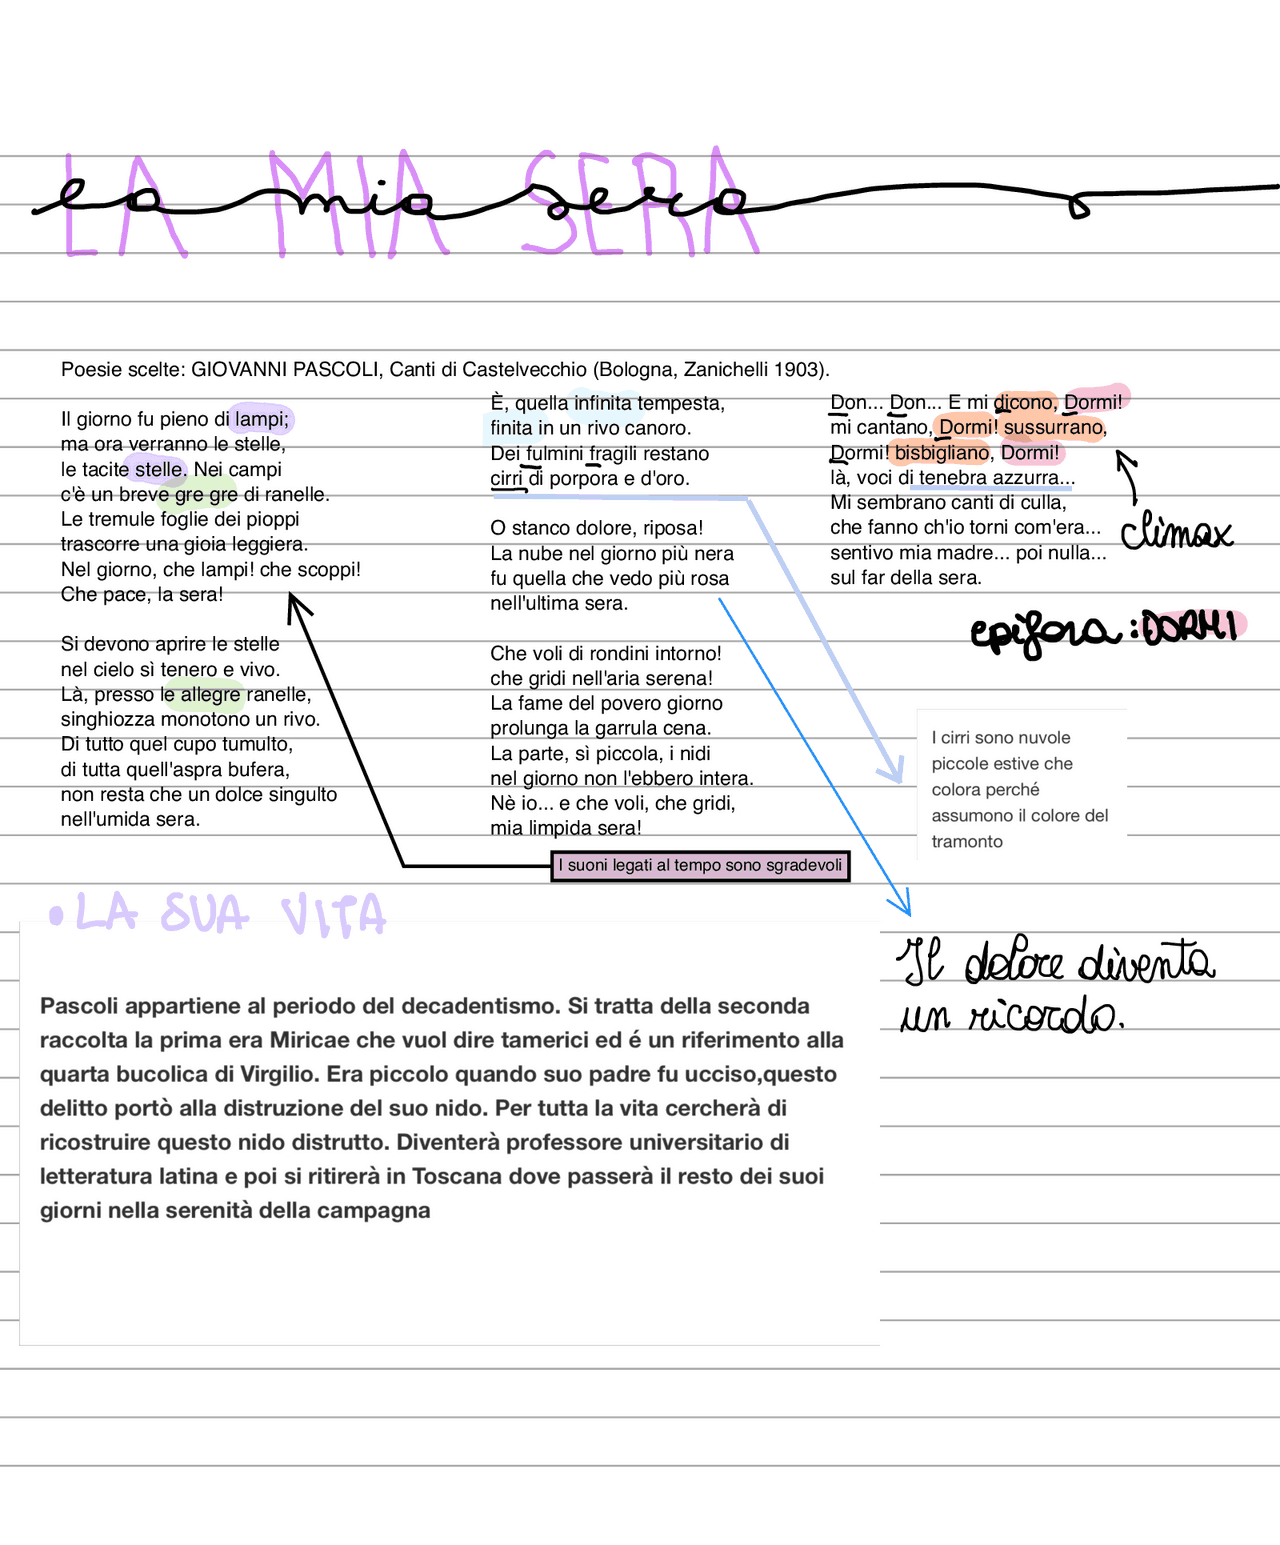 LA MIA SERA
la mia sera
Poesie scelte: GIOVANNI PASCOLI, Canti di Castelvecchio (Bologna, Zanichelli 1903).
Il giorno fu pieno di lampi;
ma ora verranno le stelle,
le tacite stelle. Nei campi
c'è un breve gre gre di ranelle.
Le tremule foglie dei pioppi
trascorre una gioia leggiera.
Nel giorno, che lampi! che scoppi!
Che pace, la sera!
Si devono aprire le stelle
nel cielo sì tenero e vivo.
Là, presso le allegre ranelle,
singhiozza monotono un rivo.
Di tutto quel cupo tumulto,
di tutta quell'aspra bufera,
non resta che un dolce singulto
nell'umida sera.
È, quella infinita tempesta,
finita in un rivo canoro.
Dei fulmini fragili restano
cirri di porpora e d'oro.
O stanco dolore, riposa!
La nube nel giorno più nera
fu quella che vedo più rosa
nell'ultima sera.
Che voli di rondini intorno!
che gridi nell'aria serena!
La fame del povero giorno
prolunga la garrula cena.
La parte, sì piccola, i nidi
nel giorno non l'ebbero intera.
Nè io... e che voli, che gridi,
mia limpida sera!
Don... Don... E mi dicono, Dormi!
mi cantano, Dormi! sussurrano,
Dormi! bisbigliano, Dormi!
là, voci di tenebra azzurra...
Mi sembrano canti di culla,
che fanno ch'io torni com'era...
sentivo mia madre... poi nulla...
sul far della sera.
climax
epifora: DORMI
I cirri sono nuvole
piccole estive che
colora perché
assumono il colore del
tramonto
I suoni legati al tempo sono sgradevoli
Il dolore diventa
un ricordo.
• LA SUA VITA
Pascoli appartiene al periodo del decadentismo. Si tratta della seconda
raccolta la prima era Miricae che vuol dire tamerici ed é un riferimento alla
quarta bucolica di Virgilio. Era piccolo quando suo padre fu ucciso,questo
delitto portò alla distruzione del suo nido. Per tutta la vita cercherà di
ricostruire questo nido distrutto. Diventerà professore universitario di
letteratura latina e poi si ritirerà in Toscana dove passerà il resto dei suoi
giorni nella serenità della campagna